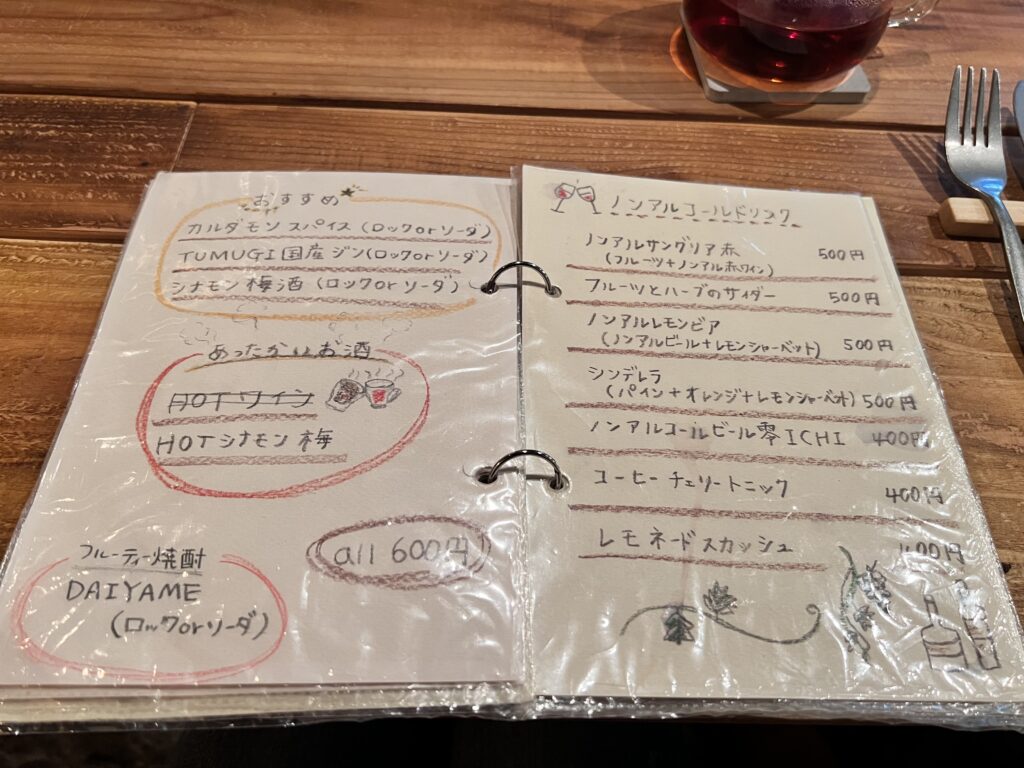 おすすめ
カルダモンスパイス(ロックorソーダ)
TUMUGI国産ジン(ロックorソーダ)
シナモン梅酒(ロックorソーダ)
あったかいお酒
HOTワイン
HOTシナモン梅
all 600円
フルーティー焼酎
DAIYAME
(ロックorソーダ)
ノンアルコールドリンク
ノンアルサングリア赤 500円
(フルーツ+ノンアル赤ワイン)
フルーツとハーブのサイダー 500円
ノンアルレモンビア
(ノンアルビール+レモンシャーベット) 500円
シンデレラ
(パイン+オレンジ+レモンシャーベット) 500円
ノンアルコールビール零ICHI 400円
コーヒーチェリートニック 400円
レモネードスカッシュ 400円